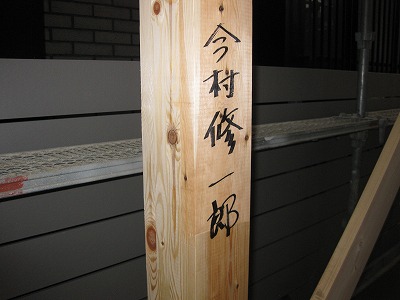 今村修一郎